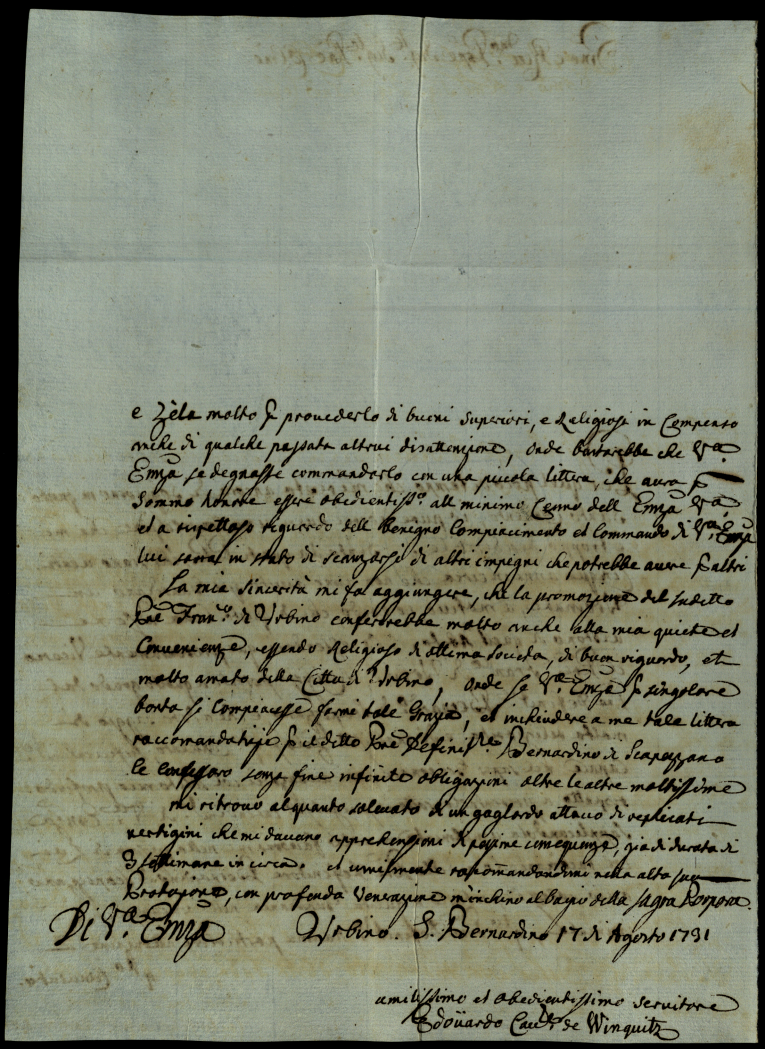 e Zela molto p provederlo di buoni Superiori, e Religiosi in Compenso
anche di qualche passata altrui disattenzione, onde bastarebbe che V.ra
Emza se degnasse commandarlo con una piccola littera, che aura p
Sommo honore essere obedientiss.o all minimo Cenno dell Emza V.ra
et a rispettoso riguardo dell benigno Compiacimento et Commando di V.ra Emza
lui sarra in stato di scanzarsi di altri impegni che potrebbe avere p altri
La mia sincerità mi fa aggiungere, che la promozione del sudetto
Pre Fran.co di Urbino conferrebbe molto anche alla mia quiete et
Convenienze, essendo Religioso d'ottima società, di buon riguardo, et
molto amato della Città di Urbino, onde se V.ra Emza p singolare
bontà si Compiacesse farmi tale Grazia, et inchiudere a me tale littera
raccomandatizia p il ditto Pre Definit.re Bernardino di Scapezzano
le confessaro senza fine infinite obligazzioni oltre le altre moltissime
mi ritrovo alquanto solevato di un gagliardo attacco di replicati
vertigini che mi davano apprehensioni di pessime consequenze, già di durata di
3 settimane in circa. et umilmente racomandandomi nella alta sua
Protezione, con profonda Venerazione m'inchino al bagio della Sagra Porpora.
Di V.ra Emza Urbino. S. Bernardino 17 di Agosto 1731
umilissimo et obedientissimo servitore
Edoüardo Cav.re de Winquitz